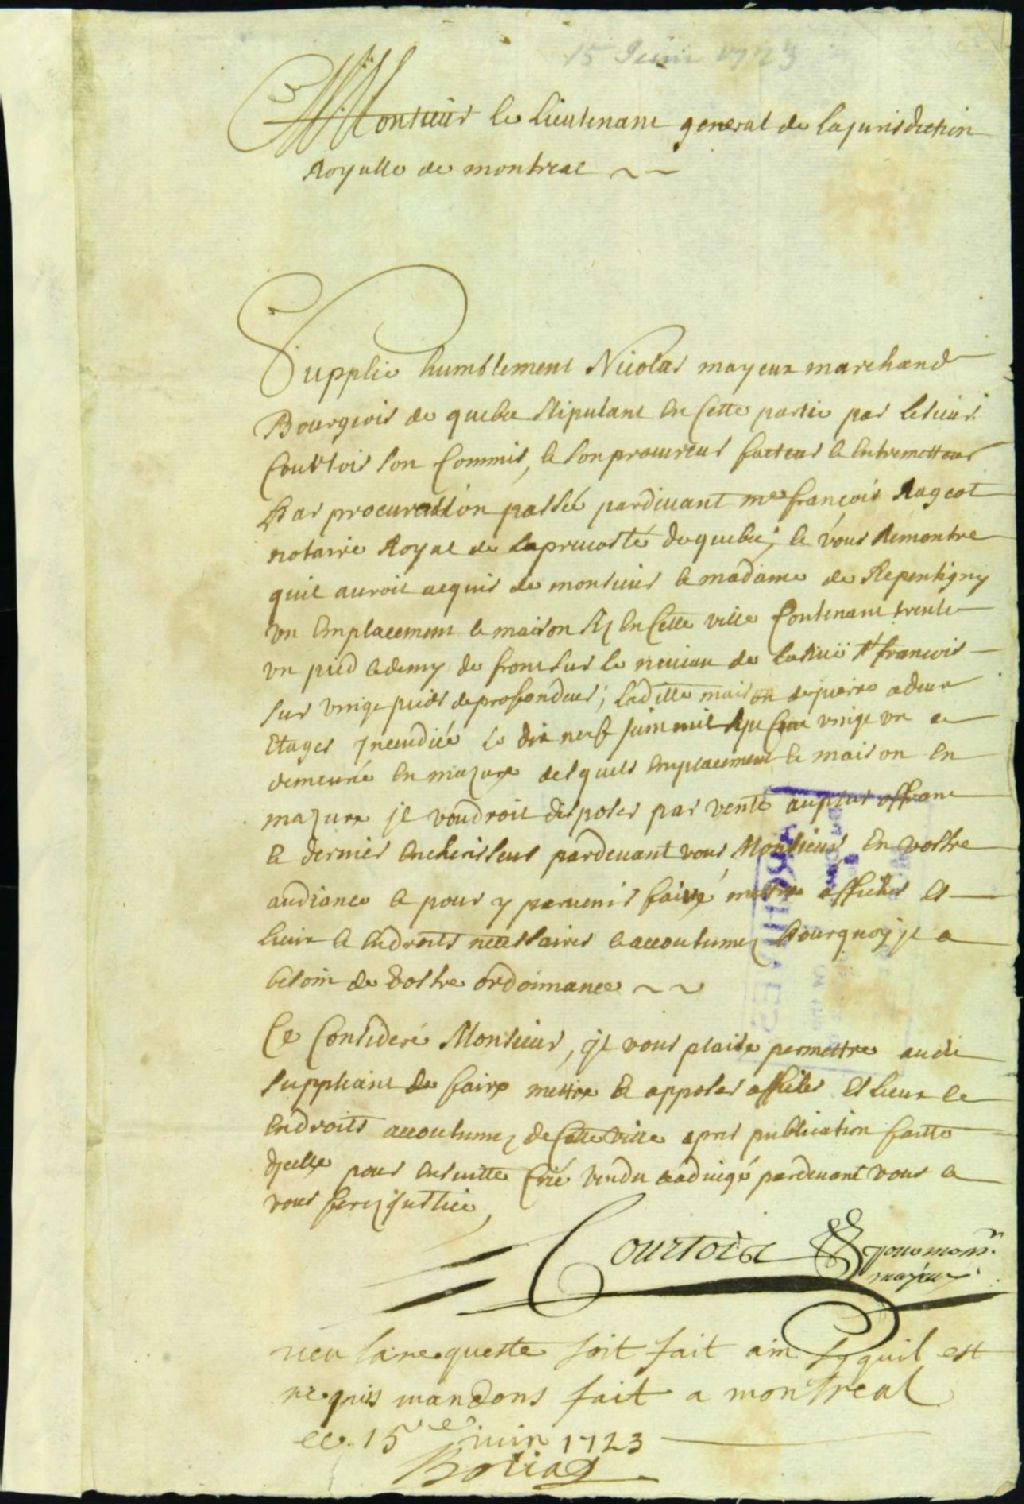 15 Juin 1723
A Monsieur le Lieutenant general de la jurisdiction
Royalle de montreal
Supplie humblement Nicolas mayeux marchand
Bourgeois de quebec stipulant en cette partie par le sieur
Courtois son Commis, & son procureur facteur & entremetteur
par procuration passée pardevant me françois Rageot
notaire Royal de la prevosté de quebec, & vous Remontre
quil auroit acquis de monsieur & madame de Repentigny
un emplacement & maison sis en cette ville Contenant trente
un pied & demy de front sur le niveau de la Ruë st francois
sur vingt pieds de profondeur; laditte maison de pierre a deux
Etages jncendiée le dix neuf juin mil sept cent vingt un &
demeurée en mazure desquels emplacement & maison en
mazure jl voudroit disposer par vente au plus offrant
& dernier encherisseur pardevant vous Monsieur, en vostre
audiance & pour y parvenir faire mettre affiches es
lieux & endroits necessaires & accoutumez Pourquoy jl a
besoin de vostre ordonnance
Ce Consideré Monsieur, jl vous plaise permettre audit
suppliant de faire mettre & apposer affiches es lieux &
endroits accoutumez de Cette ville apres publication faitte
djcelle pour ensuitte Crié vendu & adjugé pardevant vous &
vous ferez justice,
Courtois pour monsr
mayeux
veu la requeste soit fait ainsy quil est
requis mandons fait a montreal
ce 15e juin 1723
ARCHIVES